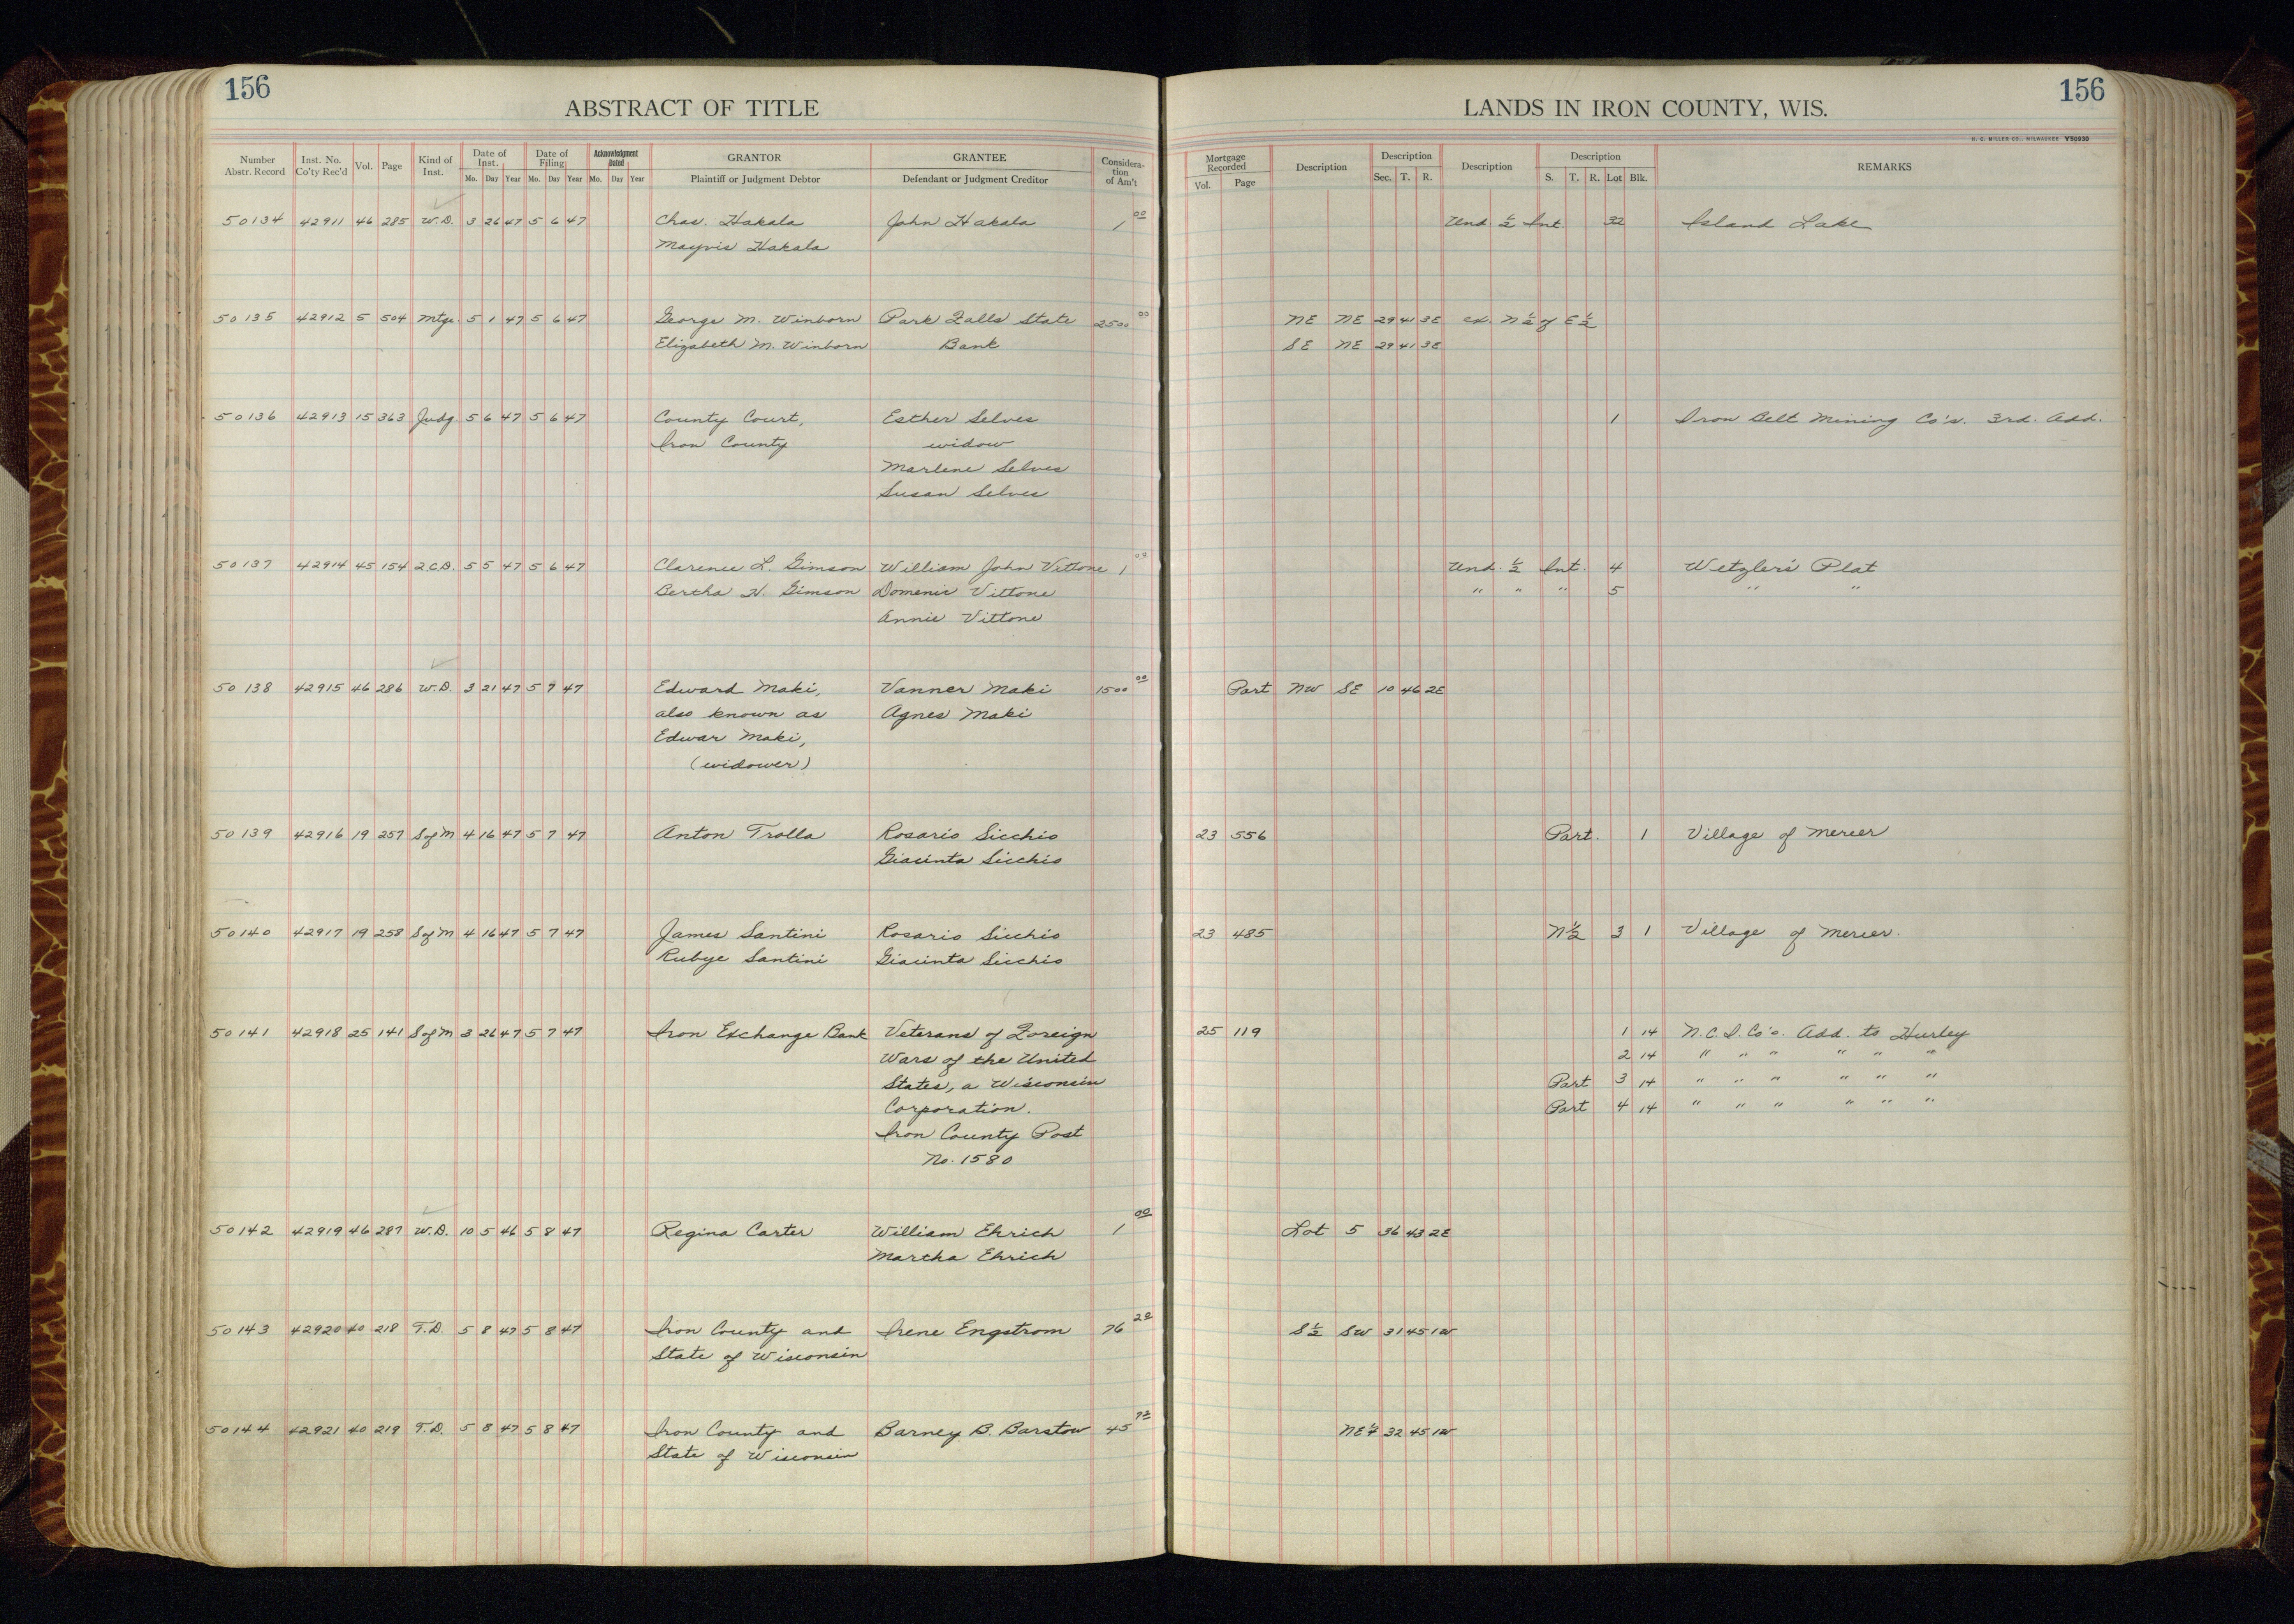 156
ABSTRACT OF TITLE
LANDS IN IRON COUNTY, WIS.
156
H. C. MILLER CO., MILWAUKEE Y50930
Number Abstr. Record Inst. No. Co'ty Rec'd Vol. Page Kind of Inst. Date of Inst. Mo. Day Year Date of Filing Mo. Day Year Acknowledgment Dated Mo. Day Year GRANTOR Plaintiff or Judgment Debtor GRANTEE Defendant or Judgment Creditor Considera-tion of Am't Mortgage Recorded Vol. Page Description Description Sec. T. R. Description Description S. T. R. Lot Blk. REMARKS
50134 42911 46 285 W.D. 3 26 47 5 6 47 Chas. Hakala John Hakala 1 00 Und. ½ Int. 32 Island Lake
Mayvis Hakala
50135 42912 5 504 Mtge. 5 1 47 5 6 47 George M. Winborn Park Falls State 2500 00 NE NE 29 41 3E ex. N½ of E½
Elizabeth M. Winborn Bank SE NE 29 41 3E
50136 42913 15 363 Judg. 5 6 47 5 6 47 County Court, Esther Selves 1 Iron Belt Mining Co's. 3rd. Add.
Iron County widow
Marlene Selves
Susan Selves
50137 42914 45 154 2.C.D. 5 5 47 5 6 47 Clarence L. Gimson William John Vittone 1 00 Und. ½ Int. 4 Wetzler's Plat
Bertha H. Gimson Domenic Vittone " " " 5 " "
Annie Vittone
50138 42915 46 286 W.D. 3 21 47 5 7 47 Edward Maki, Vanner Maki 1500 00 Part NW SE 10 46 2E
also known as Agnes Maki
Edwar Maki,
(widower)
50139 42916 19 257 S of M 4 16 47 5 7 47 Anton Trolla Rosario Sicchio 23 556 Part. 1 Village of Mercer
Giacinta Sicchio
50140 42917 19 258 S of M 4 16 47 5 7 47 James Santini Rosario Sicchio 23 485 N½ 3 1 Village of Mercer.
Rubye Santini Giacinta Sicchio
50141 42918 25 141 S of M 3 26 47 5 7 47 Iron Exchange Bank Veterans of Foreign 25 119 1 14 N.C.I. Co's. Add. to Hurley
Wars of the United 2 14 " " " " " "
States, a Wisconsin Part 3 14 " " " " " "
Corporation. Part 4 14 " " " " " "
Iron County Post
No. 1580
50142 42919 46 287 W.D. 10 5 46 5 8 47 Regina Carter William Ehrich 1 00 Lot 5 36 43 2E
Martha Ehrich
50143 42920 40 218 T.D. 5 8 47 5 8 47 Iron County and Irene Engstrom 76 20 S½ SW 31 45 1W
State of Wisconsin
50144 42921 40 219 T.D. 5 8 47 5 8 47 Iron County and Barney B. Barstow 45 NE¼ 32 45 1W
State of Wisconsin